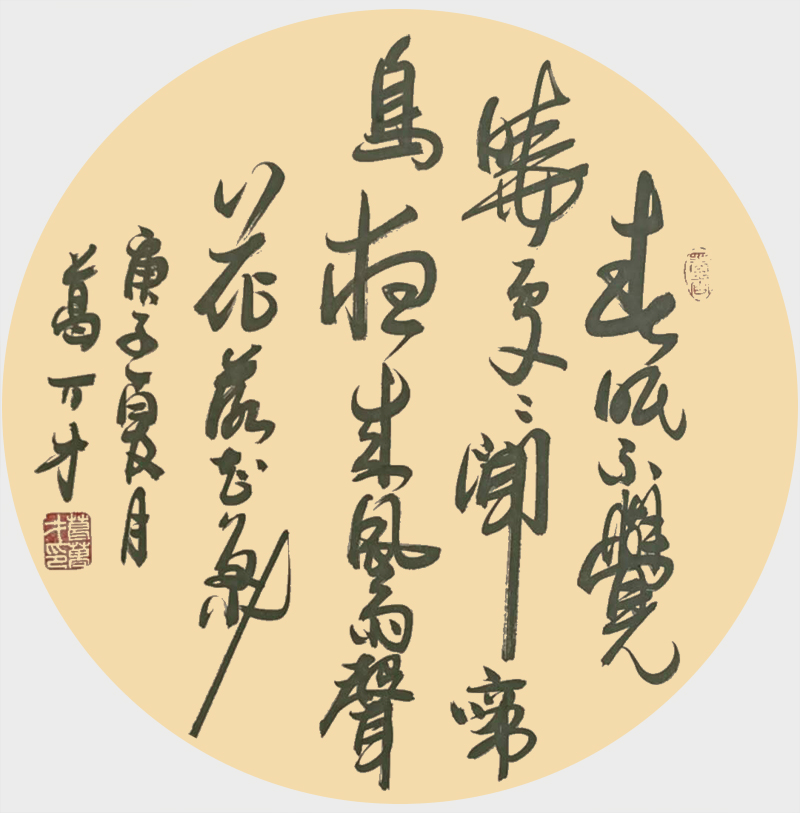 春眠不覺
曉處〻聞啼
鳥夜来風雨聲
花落知多少
庚子夏月
葛万才
葛萬才印